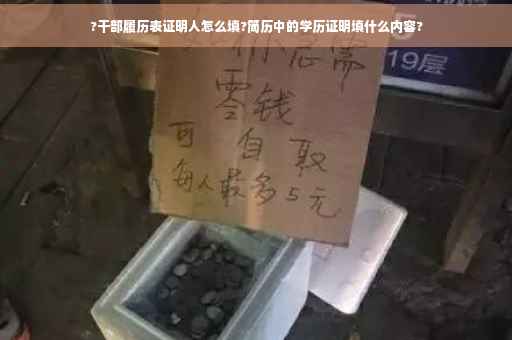 ?干部履历表证明人怎么填?简历中的学历证明填什么内容?
你急需
零钱
可自取
每人最多5元
19层